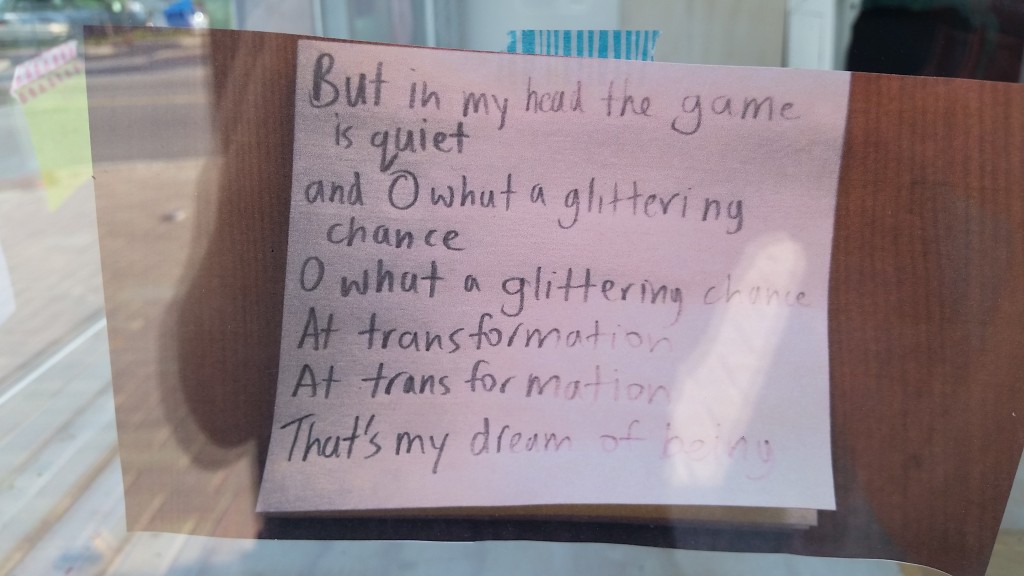 But in my head the game
is quiet
and O what a glittering
chance
O what a glittering chance
At transformation
At transformation
That's my dream of being